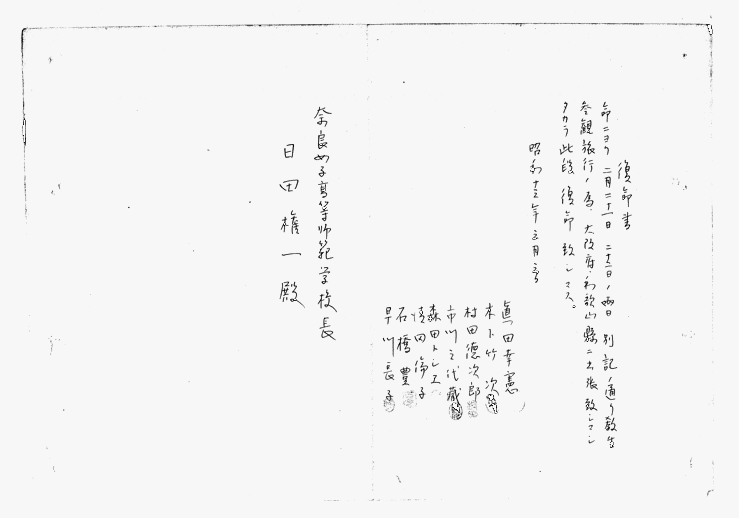 復命書
命ニヨリ二月二十一日二十二日ノ両日別記ノ通リ教生
参観旅行ノ為、大阪府和歌山縣ニ出張致シマシ
タカラ此段復命致シマス。
昭和十三年三月三日
眞田幸憲
木下竹次
村田德次郎
市川之代藏
森田トシエ
田倚子
石橋豊
早川長子
奈良女子高等師範学校長
日田権一殿